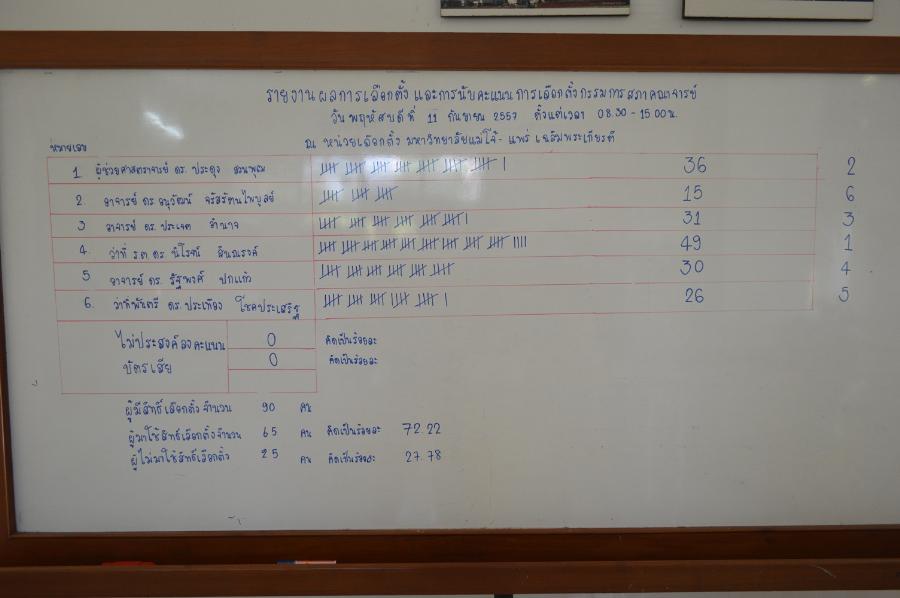 รายงานผลการเลือกตั้ง และการนับคะแนน การเลือกตั้งกรรมการสภาคณาจารย์
วันพฤหัสบดีที่ 11 กันยายน 2557 ตั้งแต่เวลา 08.30 - 15.00 น.
ณ หน่วยเลือกตั้ง มหาวิทยาลัยแม่โจ้ - แพร่ เฉลิมพระเกียรติ
หมายเลข
1 ผู้ช่วยศาสตราจารย์ ดร. ประดุง สวนพุฒ 36 2
2. อาจารย์ ดร. อนุวัฒน์ จรัสรัตนไพบูลย์ 15 6
3 อาจารย์ ดร. ประเจต อำนาจ 31 3
4. ว่าที่ ร.ต. ดร. นิโรจน์ สินณรงค์ 49 1
5 อาจารย์ ดร. รัฐพงศ์ ปกแก้ว 30 4
6. ว่าที่พันตรี ดร. ประเทือง โชคประเสริฐ 26 5
ไม่ประสงค์ลงคะแนน 0 คิดเป็นร้อยละ
บัตรเสีย 0 คิดเป็นร้อยละ
ผู้มีสิทธิ์เลือกตั้งจำนวน 90 คน
ผู้มาใช้สิทธิ์เลือกตั้งจำนวน 65 คน คิดเป็นร้อยละ 72.22
ผู้ไม่มาใช้สิทธิ์เลือกตั้ง 25 คน คิดเป็นร้อยละ 27.78